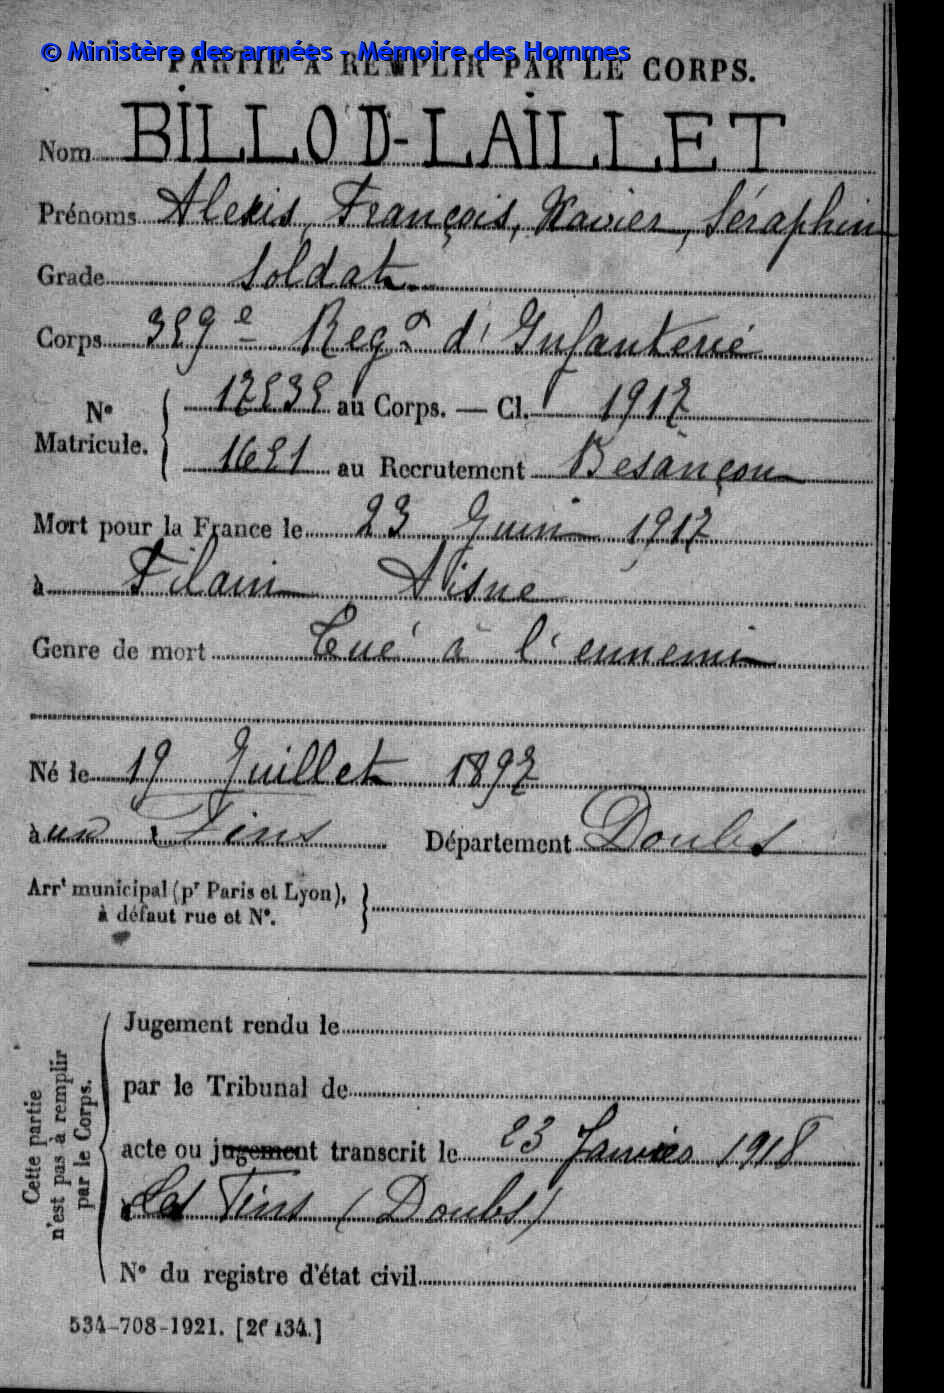 © Ministère des armées - Mémoire des Hommes
PARTIE À REMPLIR PAR LE CORPS.
Nom BILLOD-LAILLET
Prénoms Alexis, François, Xavier, Séraphin
Grade Soldat
Corps 359e Regt d'Infanterie
N° Matricule. { 17535 au Corps. — Cl. 1917
1651 au Recrutement Besançon
Mort pour la France le 23 Juin 1917
à Filain Aisne
Genre de mort Tué à l'ennemi
Né le 19 Juillet 1897
à Fins Département Doubs
Arrt municipal (pr Paris et Lyon),
à défaut rue et N°.
Cette partie n'est pas à remplir par le Corps.
Jugement rendu le
par le Tribunal de
acte ou jugement transcrit le 23 Janvier 1918
Les Fins (Doubs)
N° du registre d'état civil
534-708-1921. [26434.]